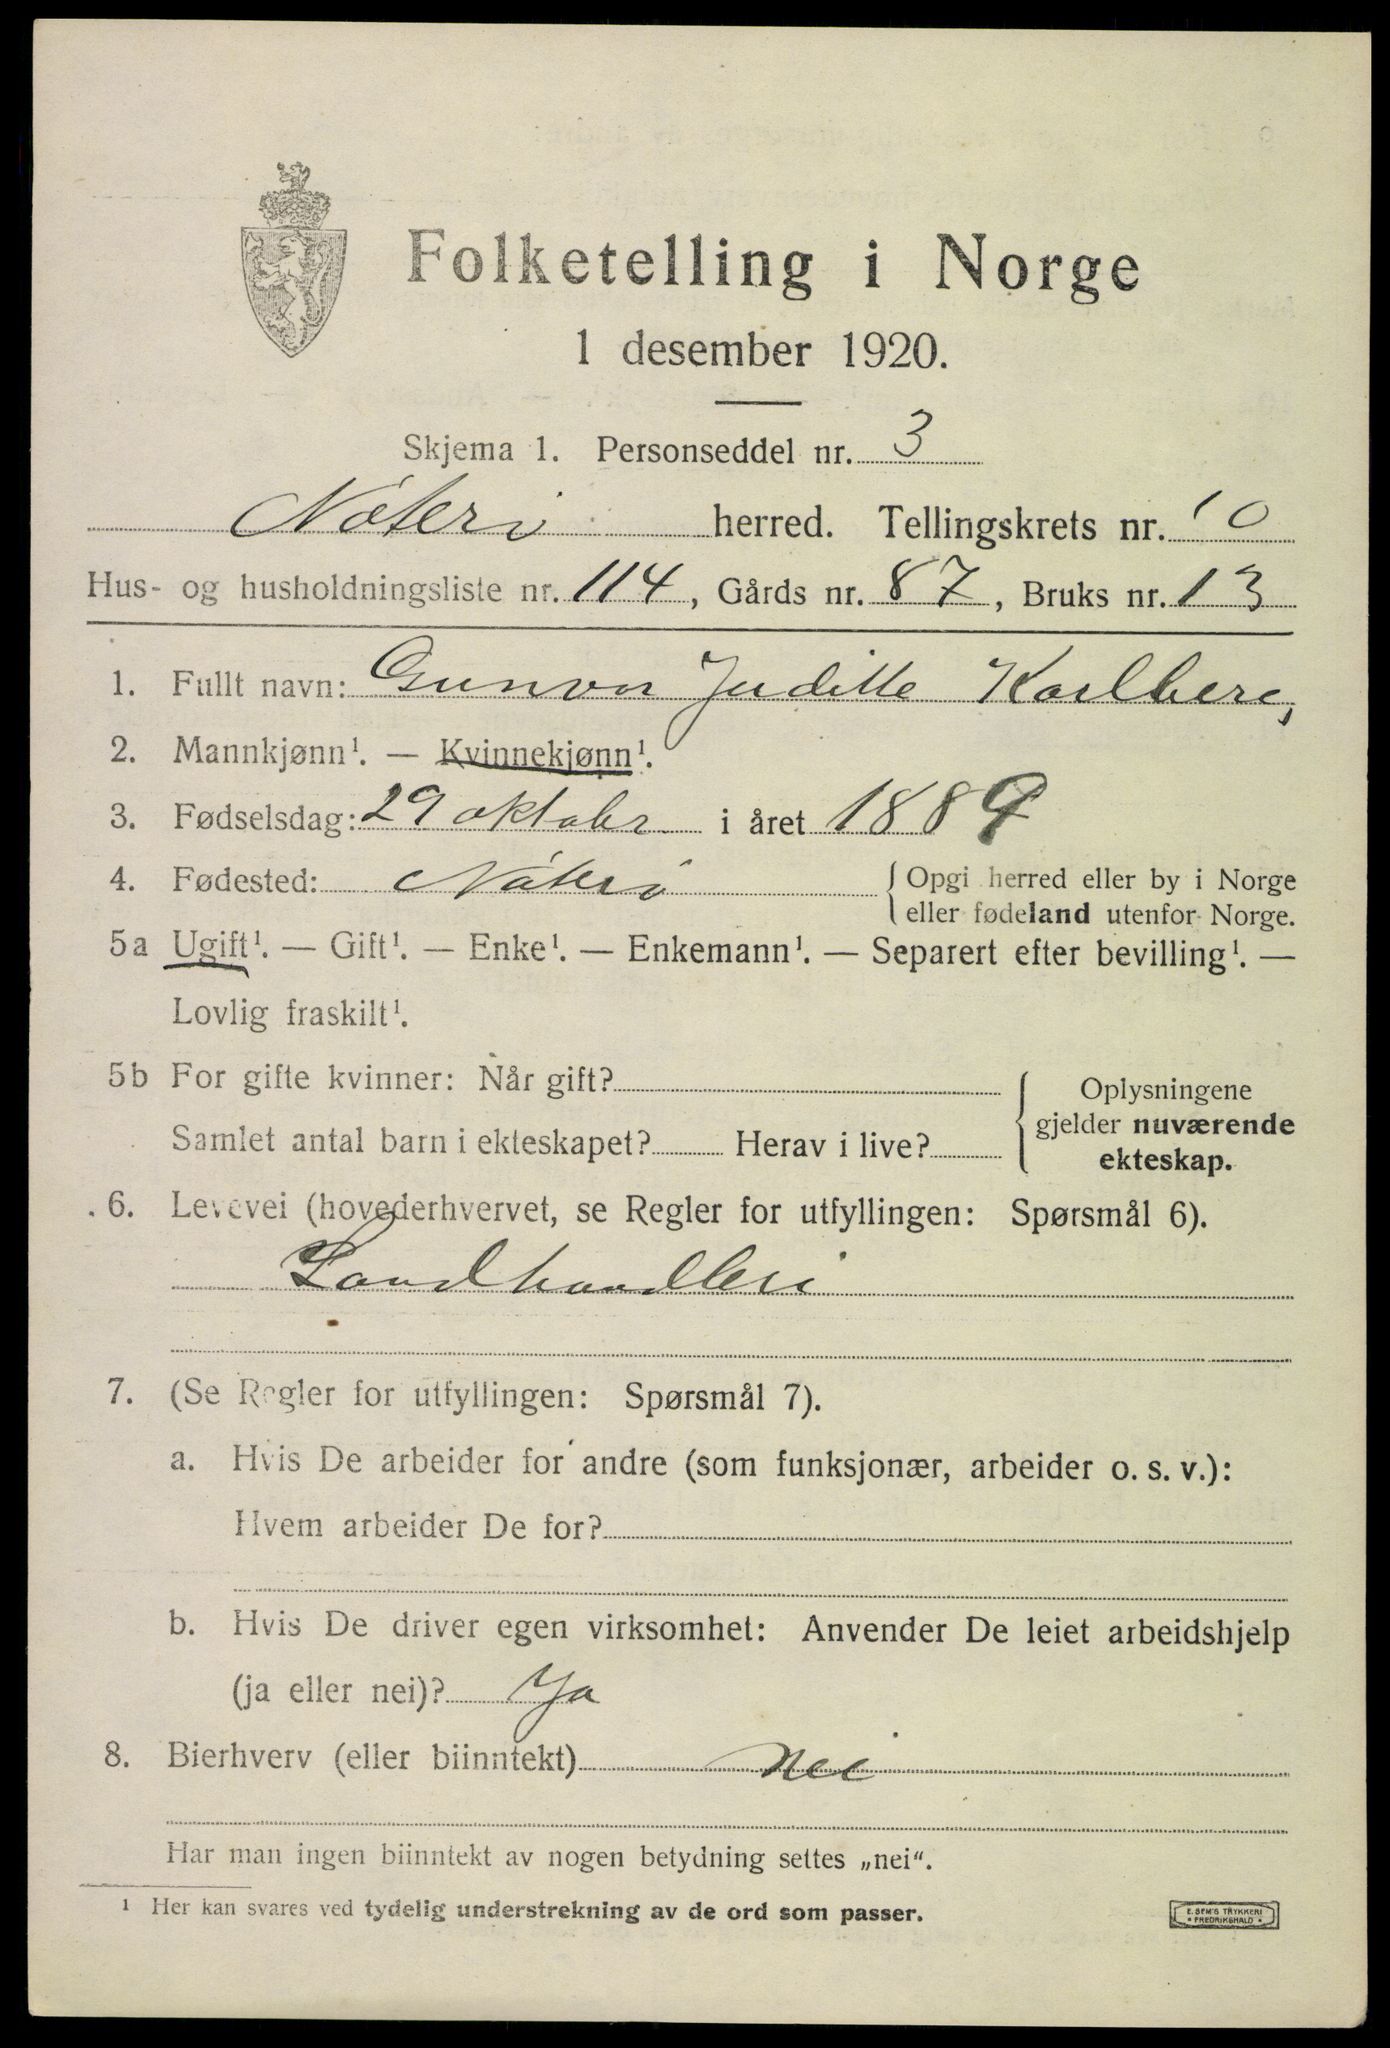 Folketelling i Norge
1 desember 1920.
Skjema 1. Personseddel nr. 3
Nøterø herred. Tellingskrets nr. 10
Hus- og husholdningsliste nr. 114, Gårds nr. 87, Bruks nr. 13
1. Fullt navn: Gunvor Juditte Karlberg
2. Mannkjønn¹. — Kvinnekjønn¹.
3. Fødselsdag: 29 oktober i året 1889
4. Fødested: Nøterø { Opgi herred eller by i Norge
eller fødeland utenfor Norge.
5a Ugift¹. — Gift¹. — Enke¹. — Enkemann¹. — Separert efter bevilling¹. —
Lovlig fraskilt¹.
5b For gifte kvinner: Når gift? { Oplysningene
Samlet antal barn i ekteskapet? Herav i live? gjelder nuværende
ekteskap.
6. Levevei (hovederhvervet, se Regler for utfyllingen: Spørsmål 6).
Landhandleri
7. (Se Regler for utfyllingen: Spørsmål 7).
a. Hvis De arbeider for andre (som funksjonær, arbeider o. s. v.):
Hvem arbeider De for?
b. Hvis De driver egen virksomhet: Anvender De leiet arbeidshjelp
(ja eller nei)? Ja
8. Bierhverv (eller biinntekt) nei
Har man ingen biinntekt av nogen betydning settes „nei“.
¹ Her kan svares ved tydelig understrekning av de ord som passer.
E. SEM'S TRYKKERI
* FREDRIKSHALD *